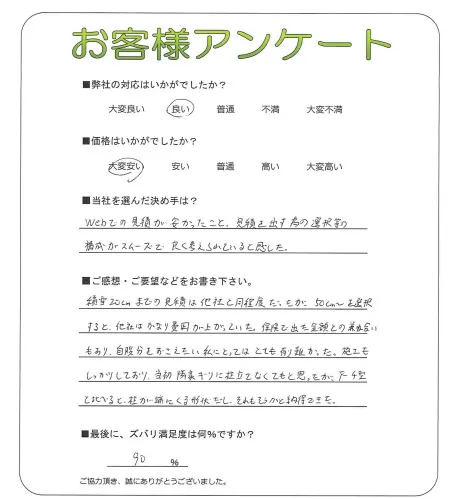 お客様アンケート
■弊社の対応はいかがでしたか？
大変良い 良い 普通 不満 大変不満
■価格はいかがでしたか？
大変安い 安い 普通 高い 大変高い
■当社を選んだ決め手は？
Webでの見積が安かったこと、見積を出す為の選択等の
構成がスムーズで良く考えられていると感じた。
■ご感想・ご要望などをお書き下さい。
積雪20cmまでの見積は他社と同程度だったが、50cm〜を選択
すると、他社はかなり金額が上がっていた。保険で出た金額との兼ね合い
もあり、自腹分をおさえたい私にとってはとても有難かった。施工も
しっかりしており、当初 隣家ギリに柱立てなくてもと思ったが、アーチ型
と比べると、柱が端にくる形状だし、それもそうかと納得できた。
■最後に、ズバリ満足度は何%ですか？
90 %
ご協力頂き、誠にありがとうございました。